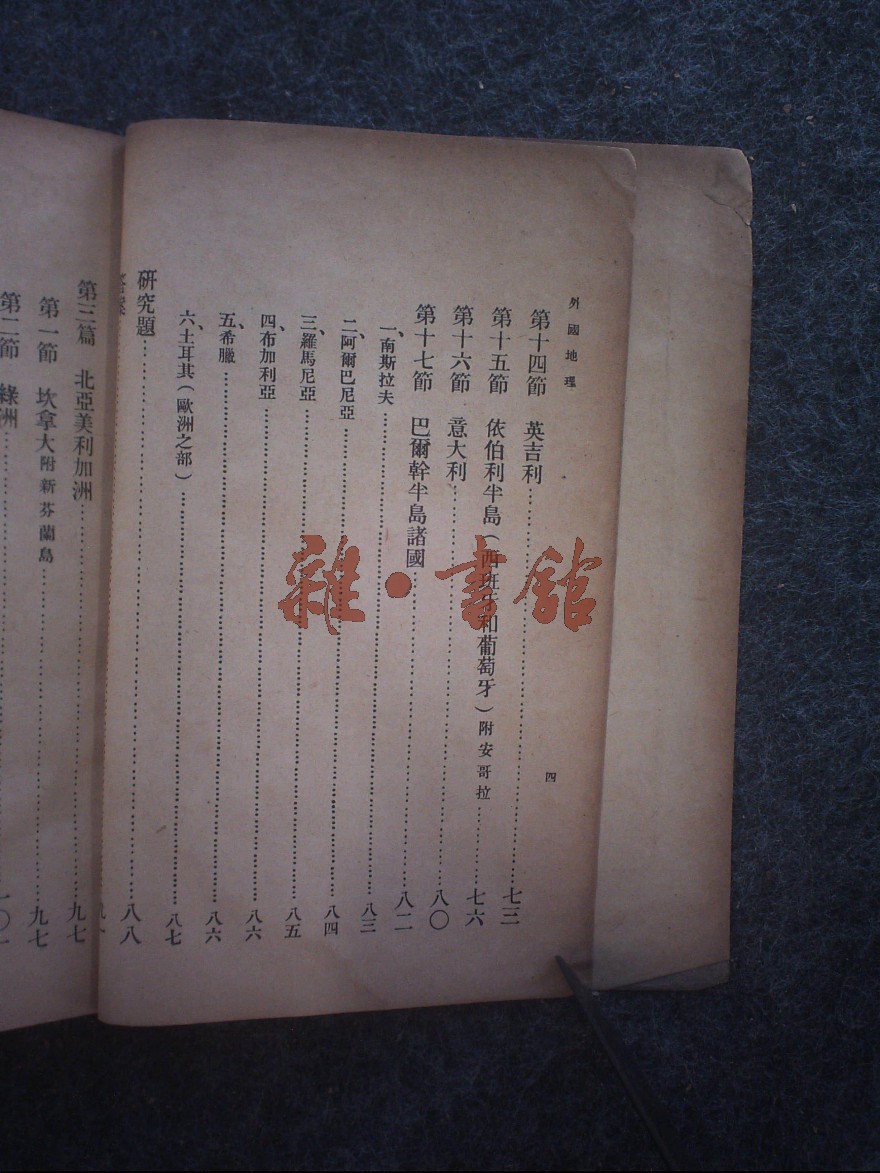 外國地理
四
第十四節 英吉利……七三
第十五節 依伯利半島(西班牙和葡萄牙)附安哥拉……七六
第十六節 意大利……八〇
第十七節 巴爾幹半島諸國……八二
一、南斯拉夫……八三
二、阿爾巴尼亞……八四
三、羅馬尼亞……八五
四、布加利亞……八六
五、希臘……八六
六、土耳其(歐洲之部)……八七
研究題……八八
第三篇 北亞美利加洲……九七
第一節 坎拿大附新芬蘭島……九七
第二節 綠洲……一〇一
雜·書館